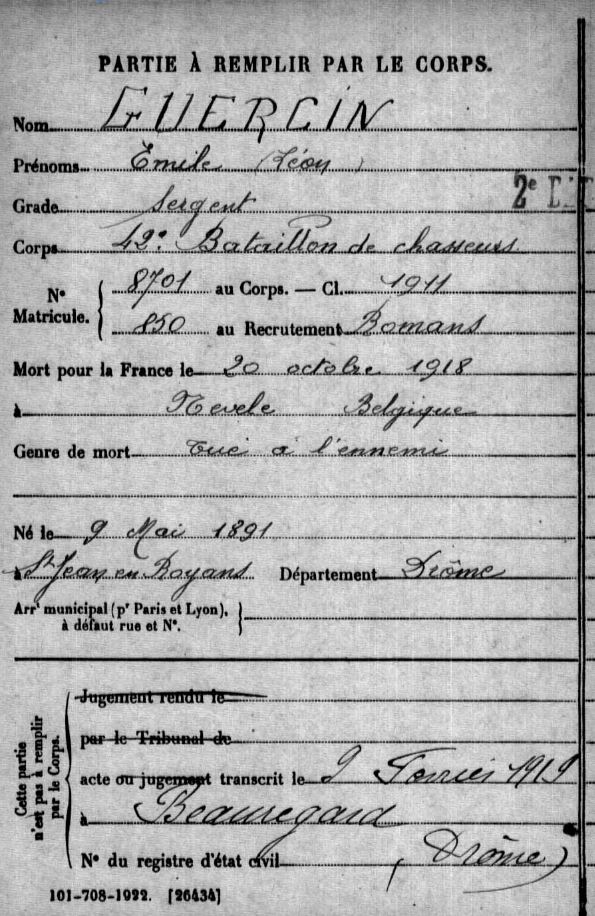 PARTIE À REMPLIR PAR LE CORPS.
Nom GUERCIN
Prénoms Émile (Léon)
Grade Sergent 2e
Corps 42e Bataillon de chasseurs
No Matricule. 8701 au Corps. — Cl. 1911
850 au Recrutement Romans
Mort pour la France le 20 octobre 1918
à Nevele Belgique
Genre de mort tué à l'ennemi
Né le 9 Mai 1891
à St Jean en Royans Département Drôme
Arrt municipal (pr Paris et Lyon),
à défaut rue et No.
Cette partie n'est pas à remplir par le Corps.
Jugement rendu le
par le Tribunal de
acte ou jugement transcrit le 9 Février 1919
à Beauregard
No du registre d'état civil (Drôme)
101-708-1922. [26434]